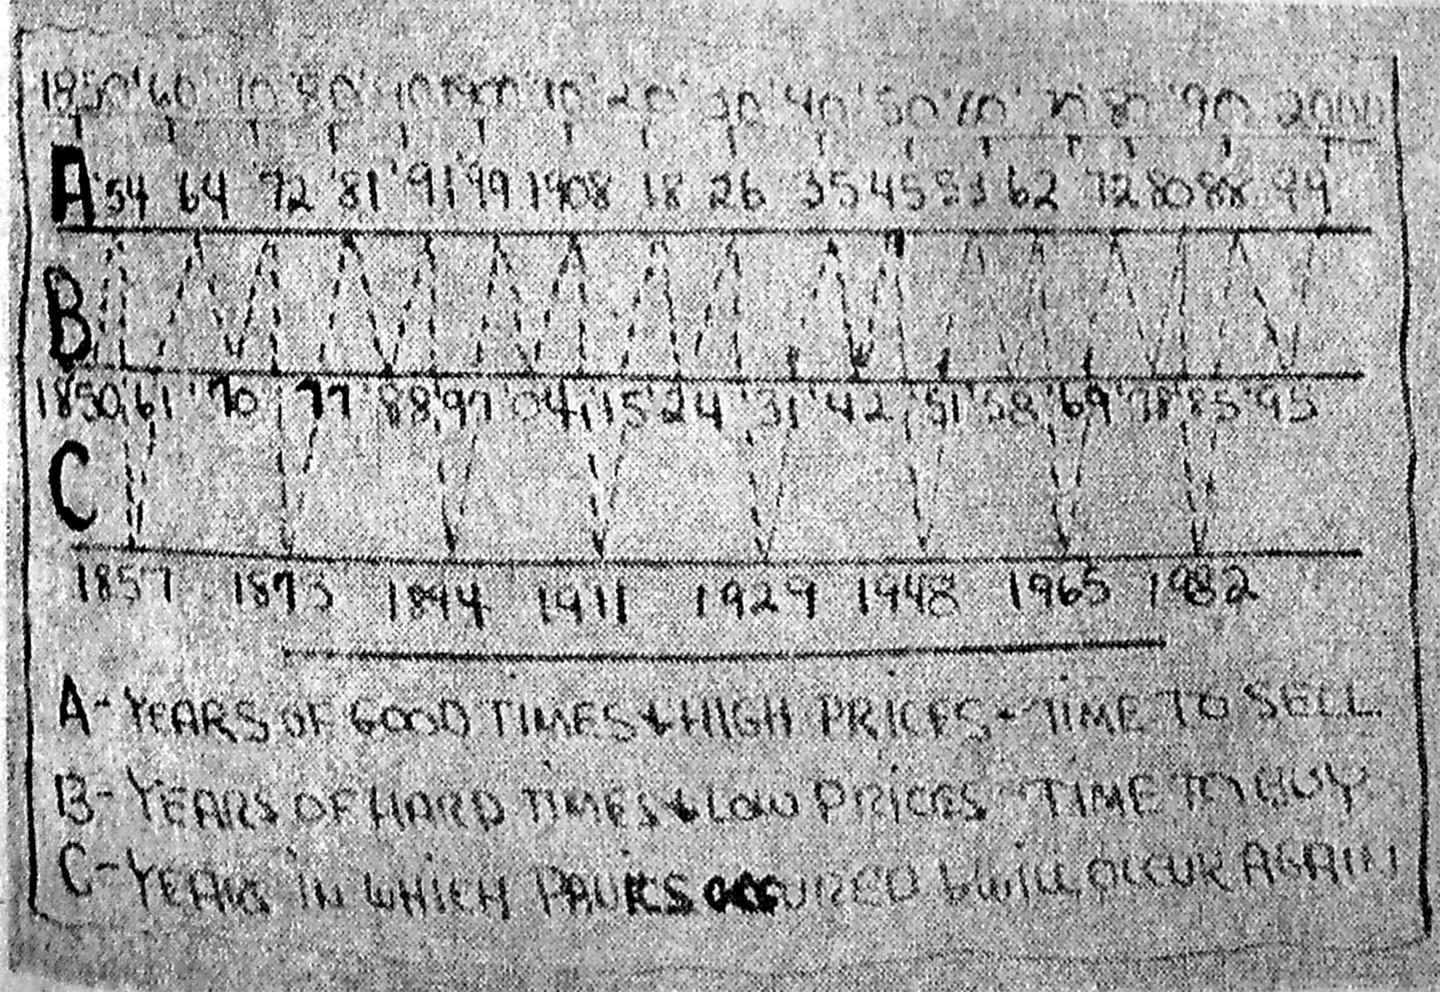 1850 '60 '70 '80 '90 1900 '10 '20 '30 '40 '50 '60 '70 '80 '90 2000
A '54 64 '72 '81 '91 '99 1908 18 26 35 45 53 62 72 80 88 99
B
1850 '61 '70 '77 '88 '97 '04 '15 '24 '31 '42 '51 '58 '69 '78 '85 '95
C
1857 1873 1894 1911 1929 1948 1965 1982
A - YEARS OF GOOD TIMES & HIGH PRICES - TIME TO SELL.
B - YEARS OF HARD TIMES & LOW PRICES - TIME TO BUY
C - YEARS IN WHICH OCCURED & WILL OCCUR AGAIN